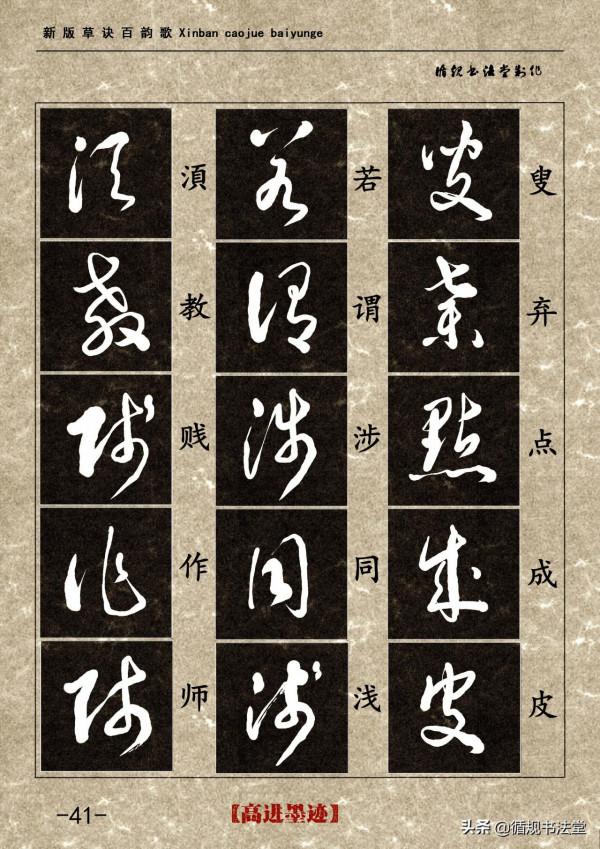 新版草诀百韵歌 Xinban caojue baiyunge
循规书法堂制作
叟弃点成皮
若谓涉同浅
湏教贱作师
-41-
【高进墨迹】
头条 @循规书法堂